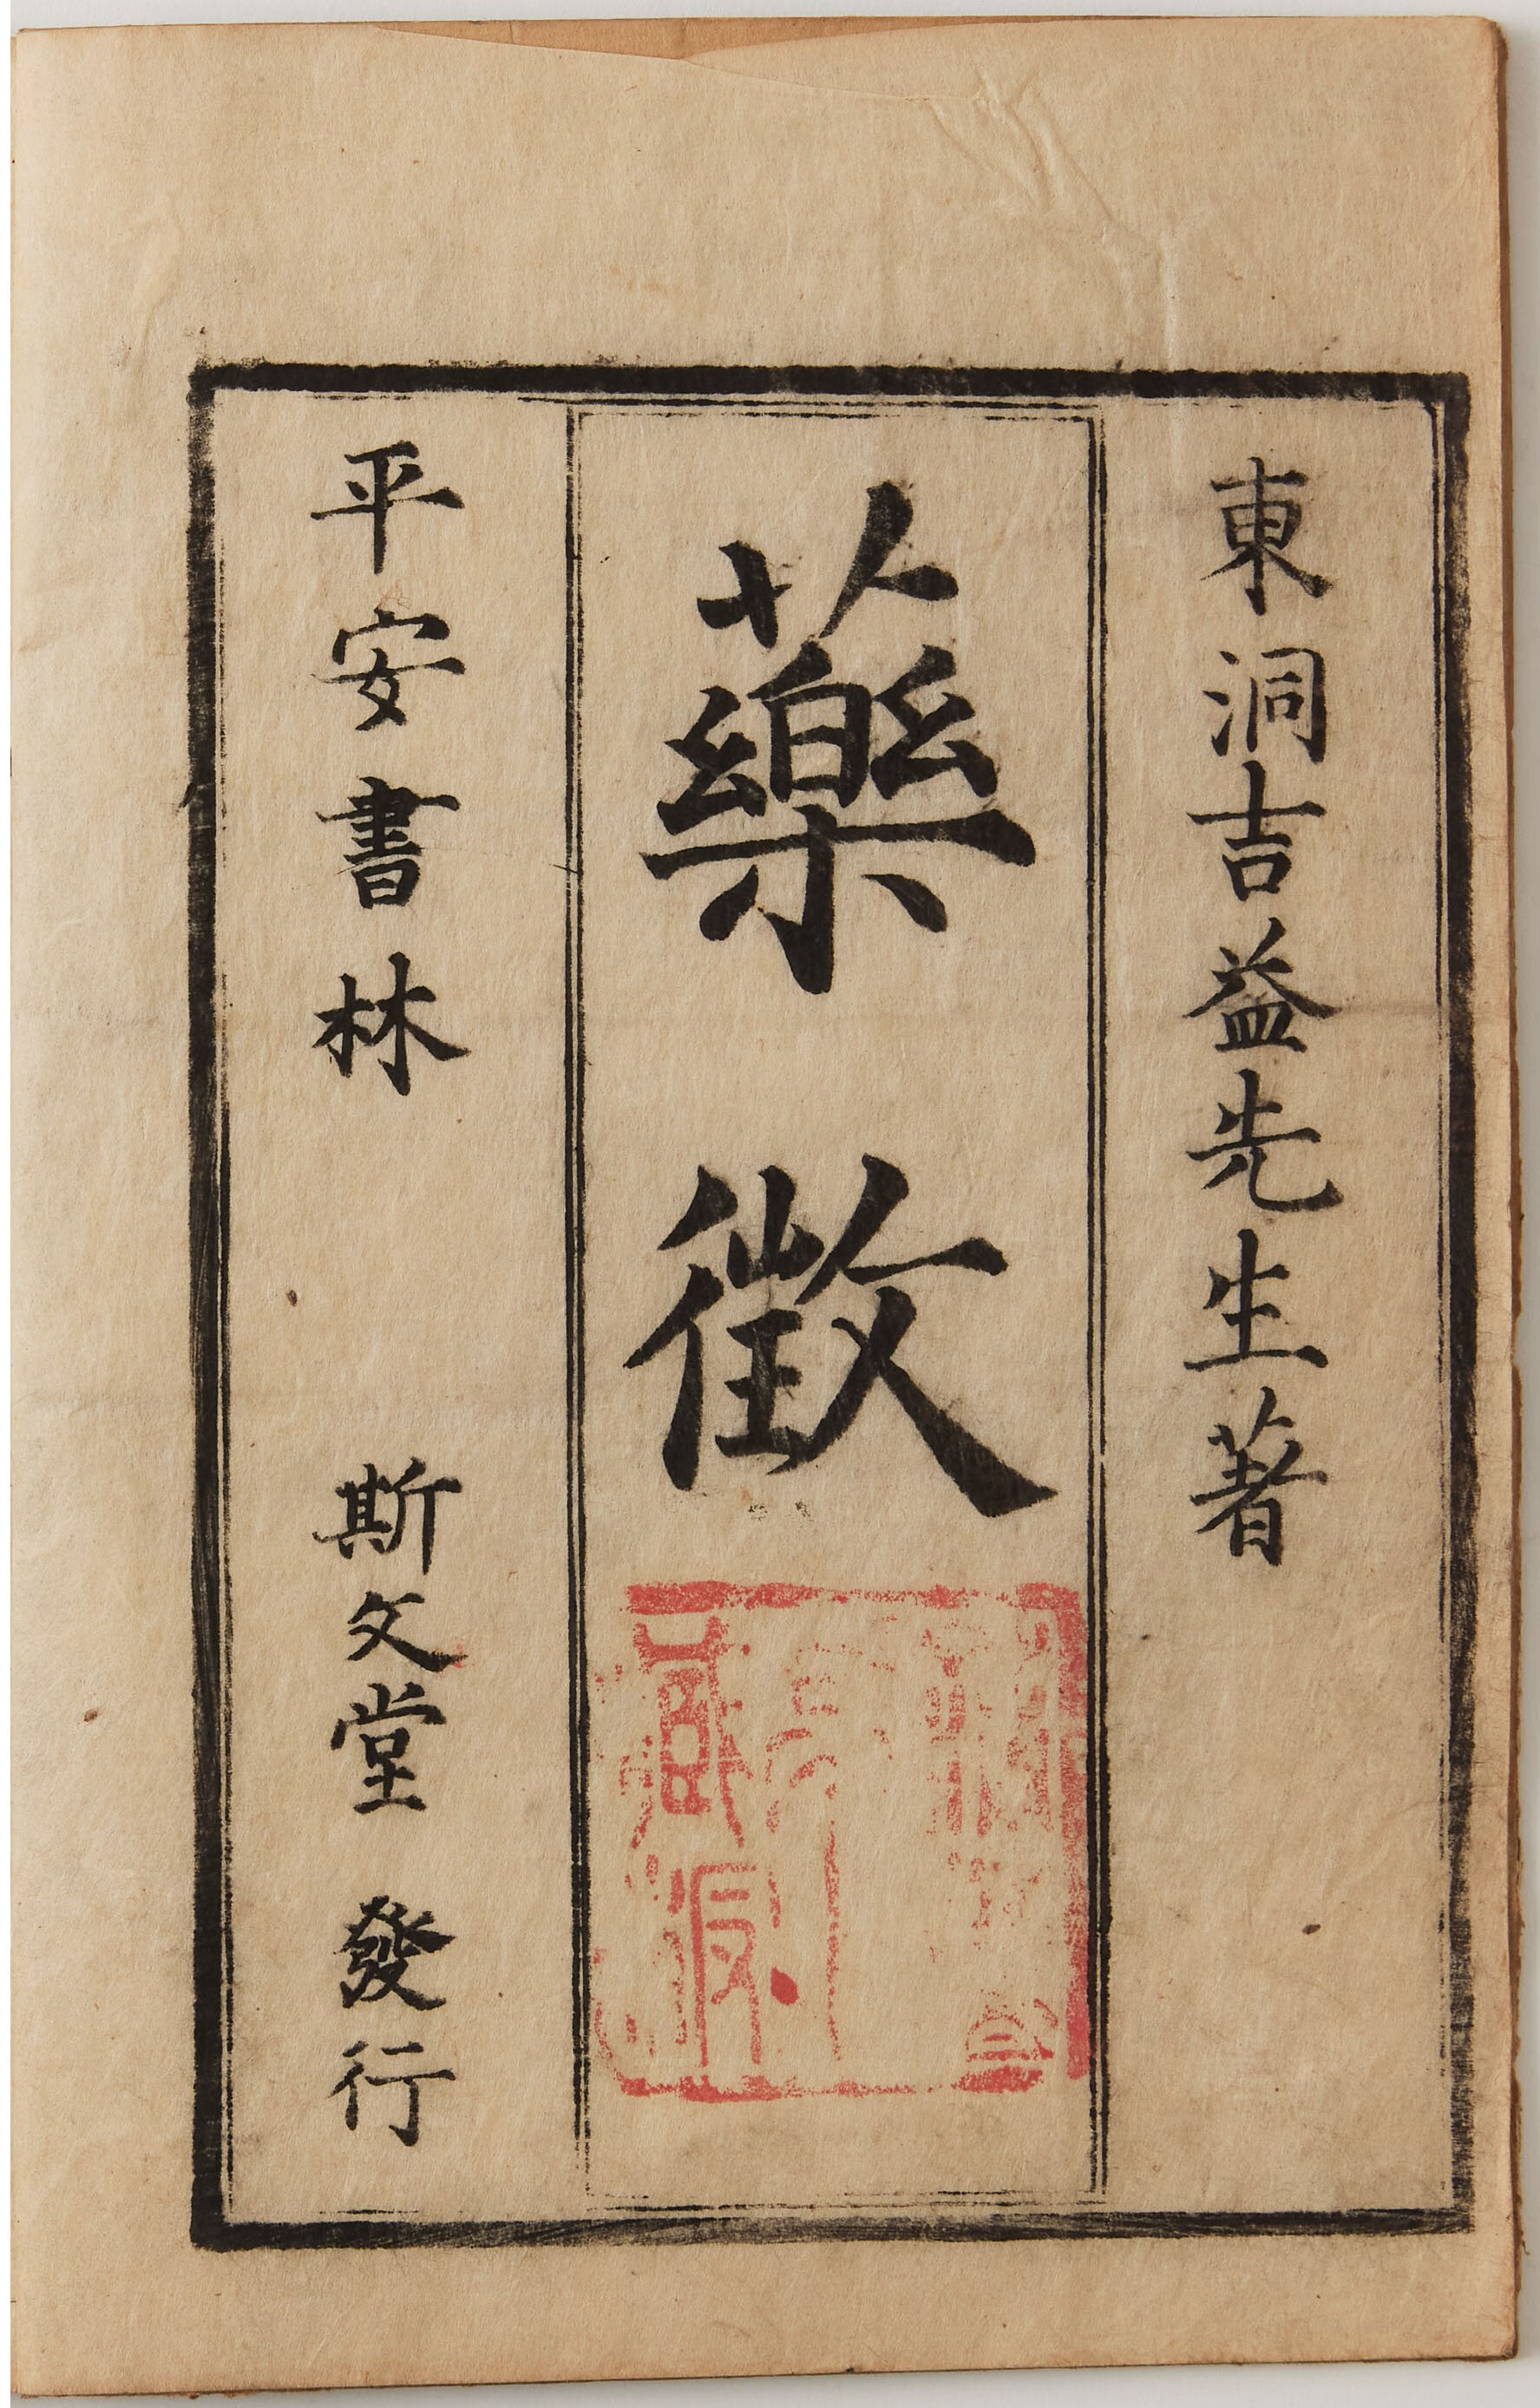 東洞吉益先生著
藥徴
平安書林 斯文堂 發行